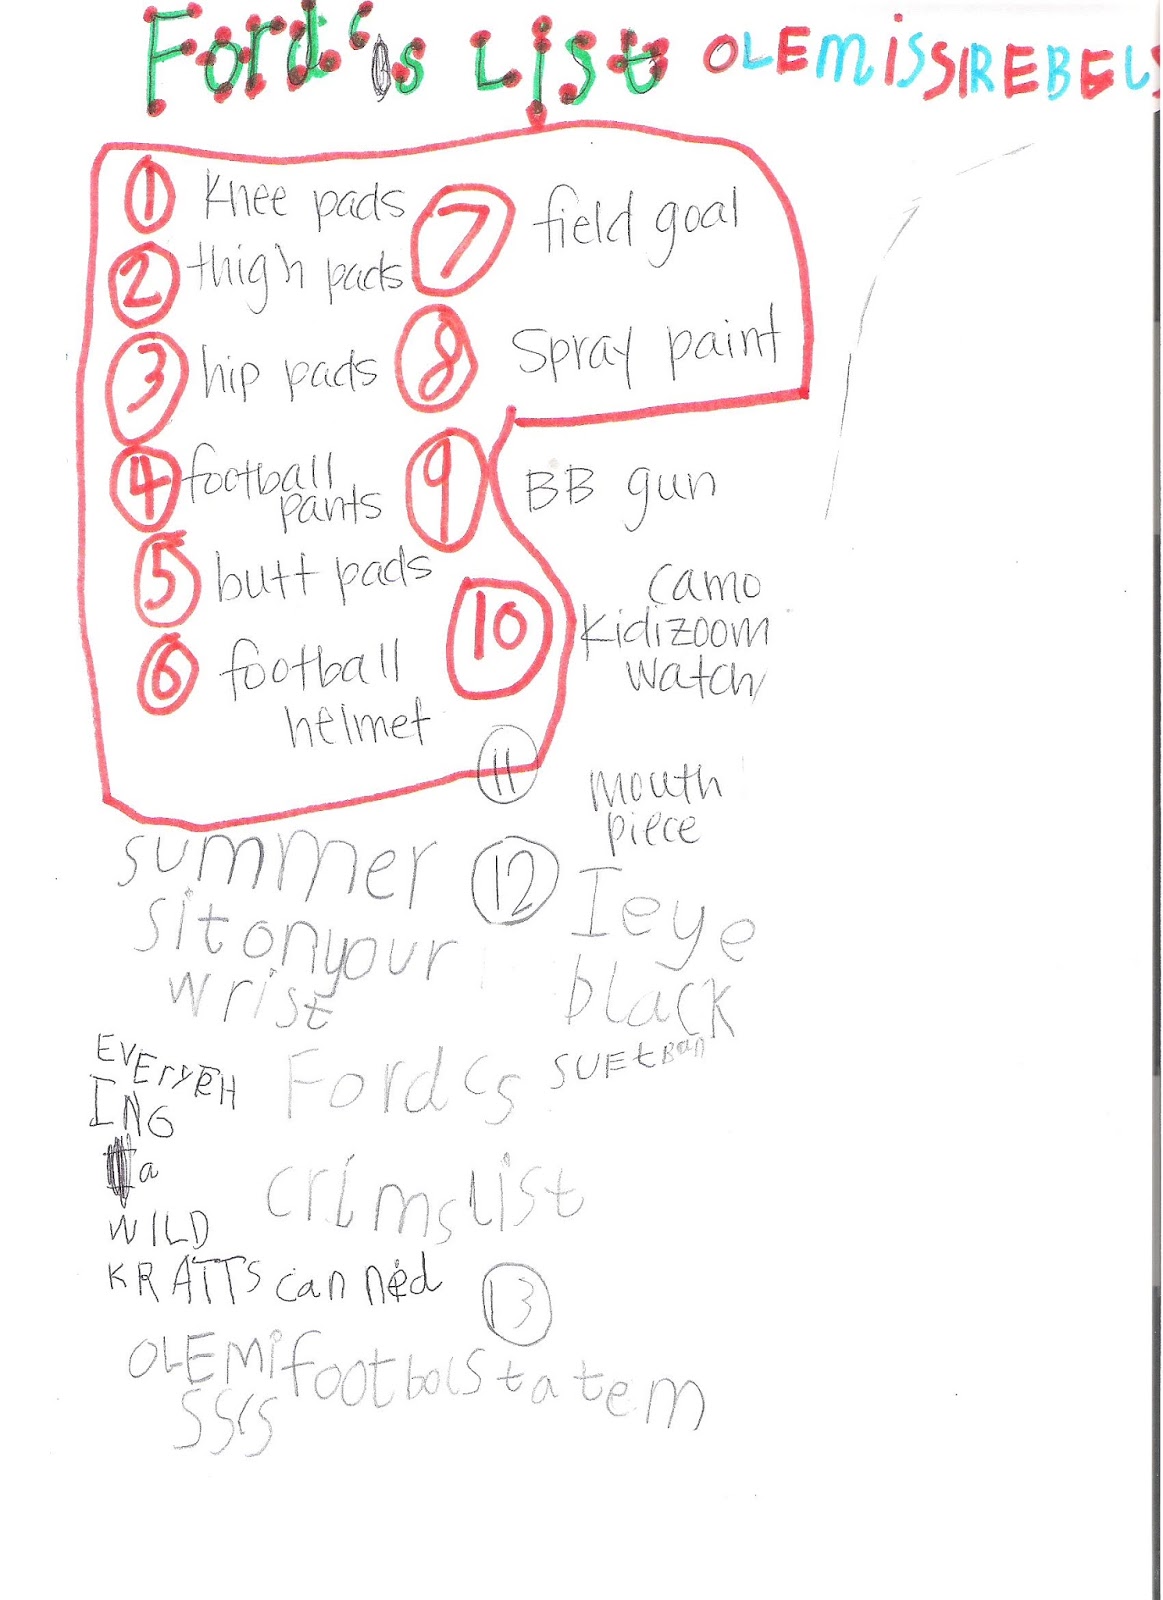 Ford's List OLEMISSREBELS
1 knee pads
2 thigh pads
3 hip pads
4 football
pants
5 butt pads
6 football
helmet
7 field goal
8 Spray paint
9 BB gun
10 camo
kidizoom
watch
11 mouth
piece
12 Ieye
black
summer
sitonyour
wrist
Fords
crimslist
EVERY
ING
a
WILD
KRATTS can
13
OLEMifootbolstatem
SS's